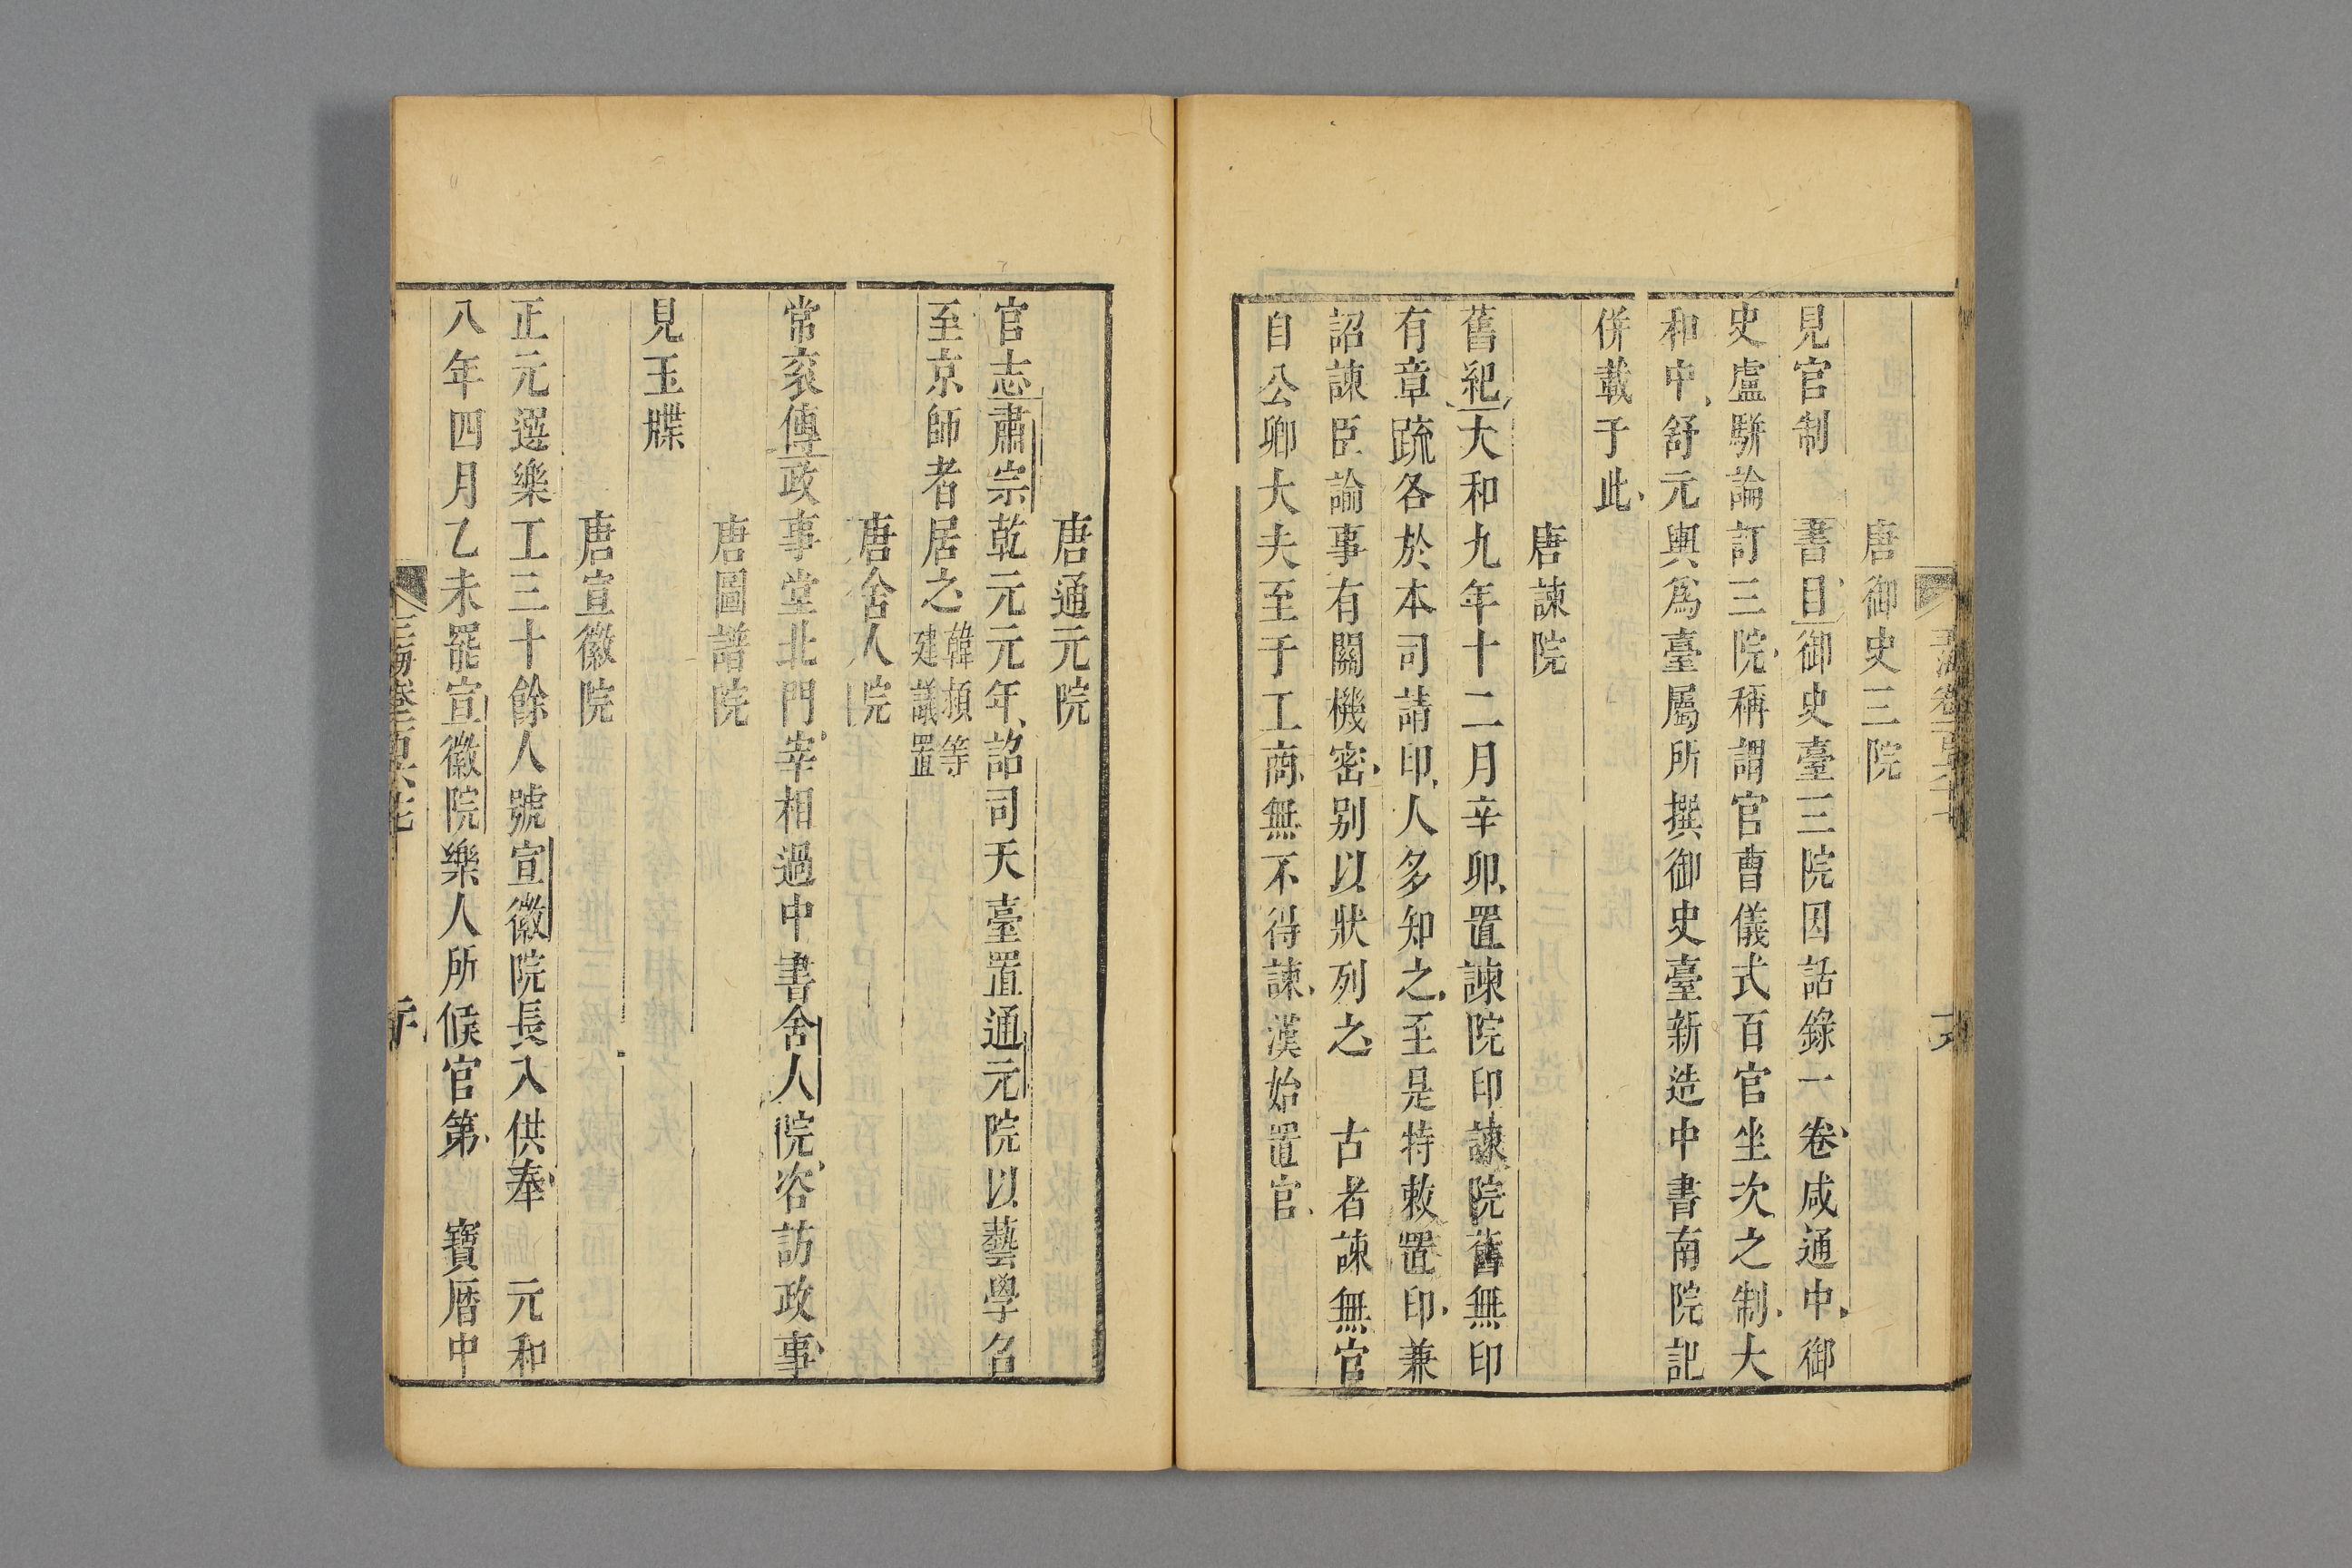 唐御史三院
見官制　書目御史臺三院因話錄一卷咸通中御
史盧駢論訂三院稱謂官曹儀式百官坐次之制大
和中舒元輿爲臺屬所撰御史臺新造中書南院記
併載于此
唐諫院
舊紀大和九年十二月辛卯置諫院印諫院舊無印
有章疏各於本司請印人多知之至是特敕置印兼
詔諫臣論事有關機密别以狀列之　古者諫無官
自公卿大夫至于工商無不得諫漢始置官
唐通元院
官志肅宗乾元元年詔司天臺置通元院以藝學召
至京師者居之韓頻等建議置
唐舍人院
常衮傳政事堂北門宰相過中書舍人院咨訪政事
唐圖譜院
見玉牒
唐宣徽院
正元選樂工三十餘人號宣徽院長入供奉　元和
八年四月乙未罷宣徽院樂人所候官第　寶曆中